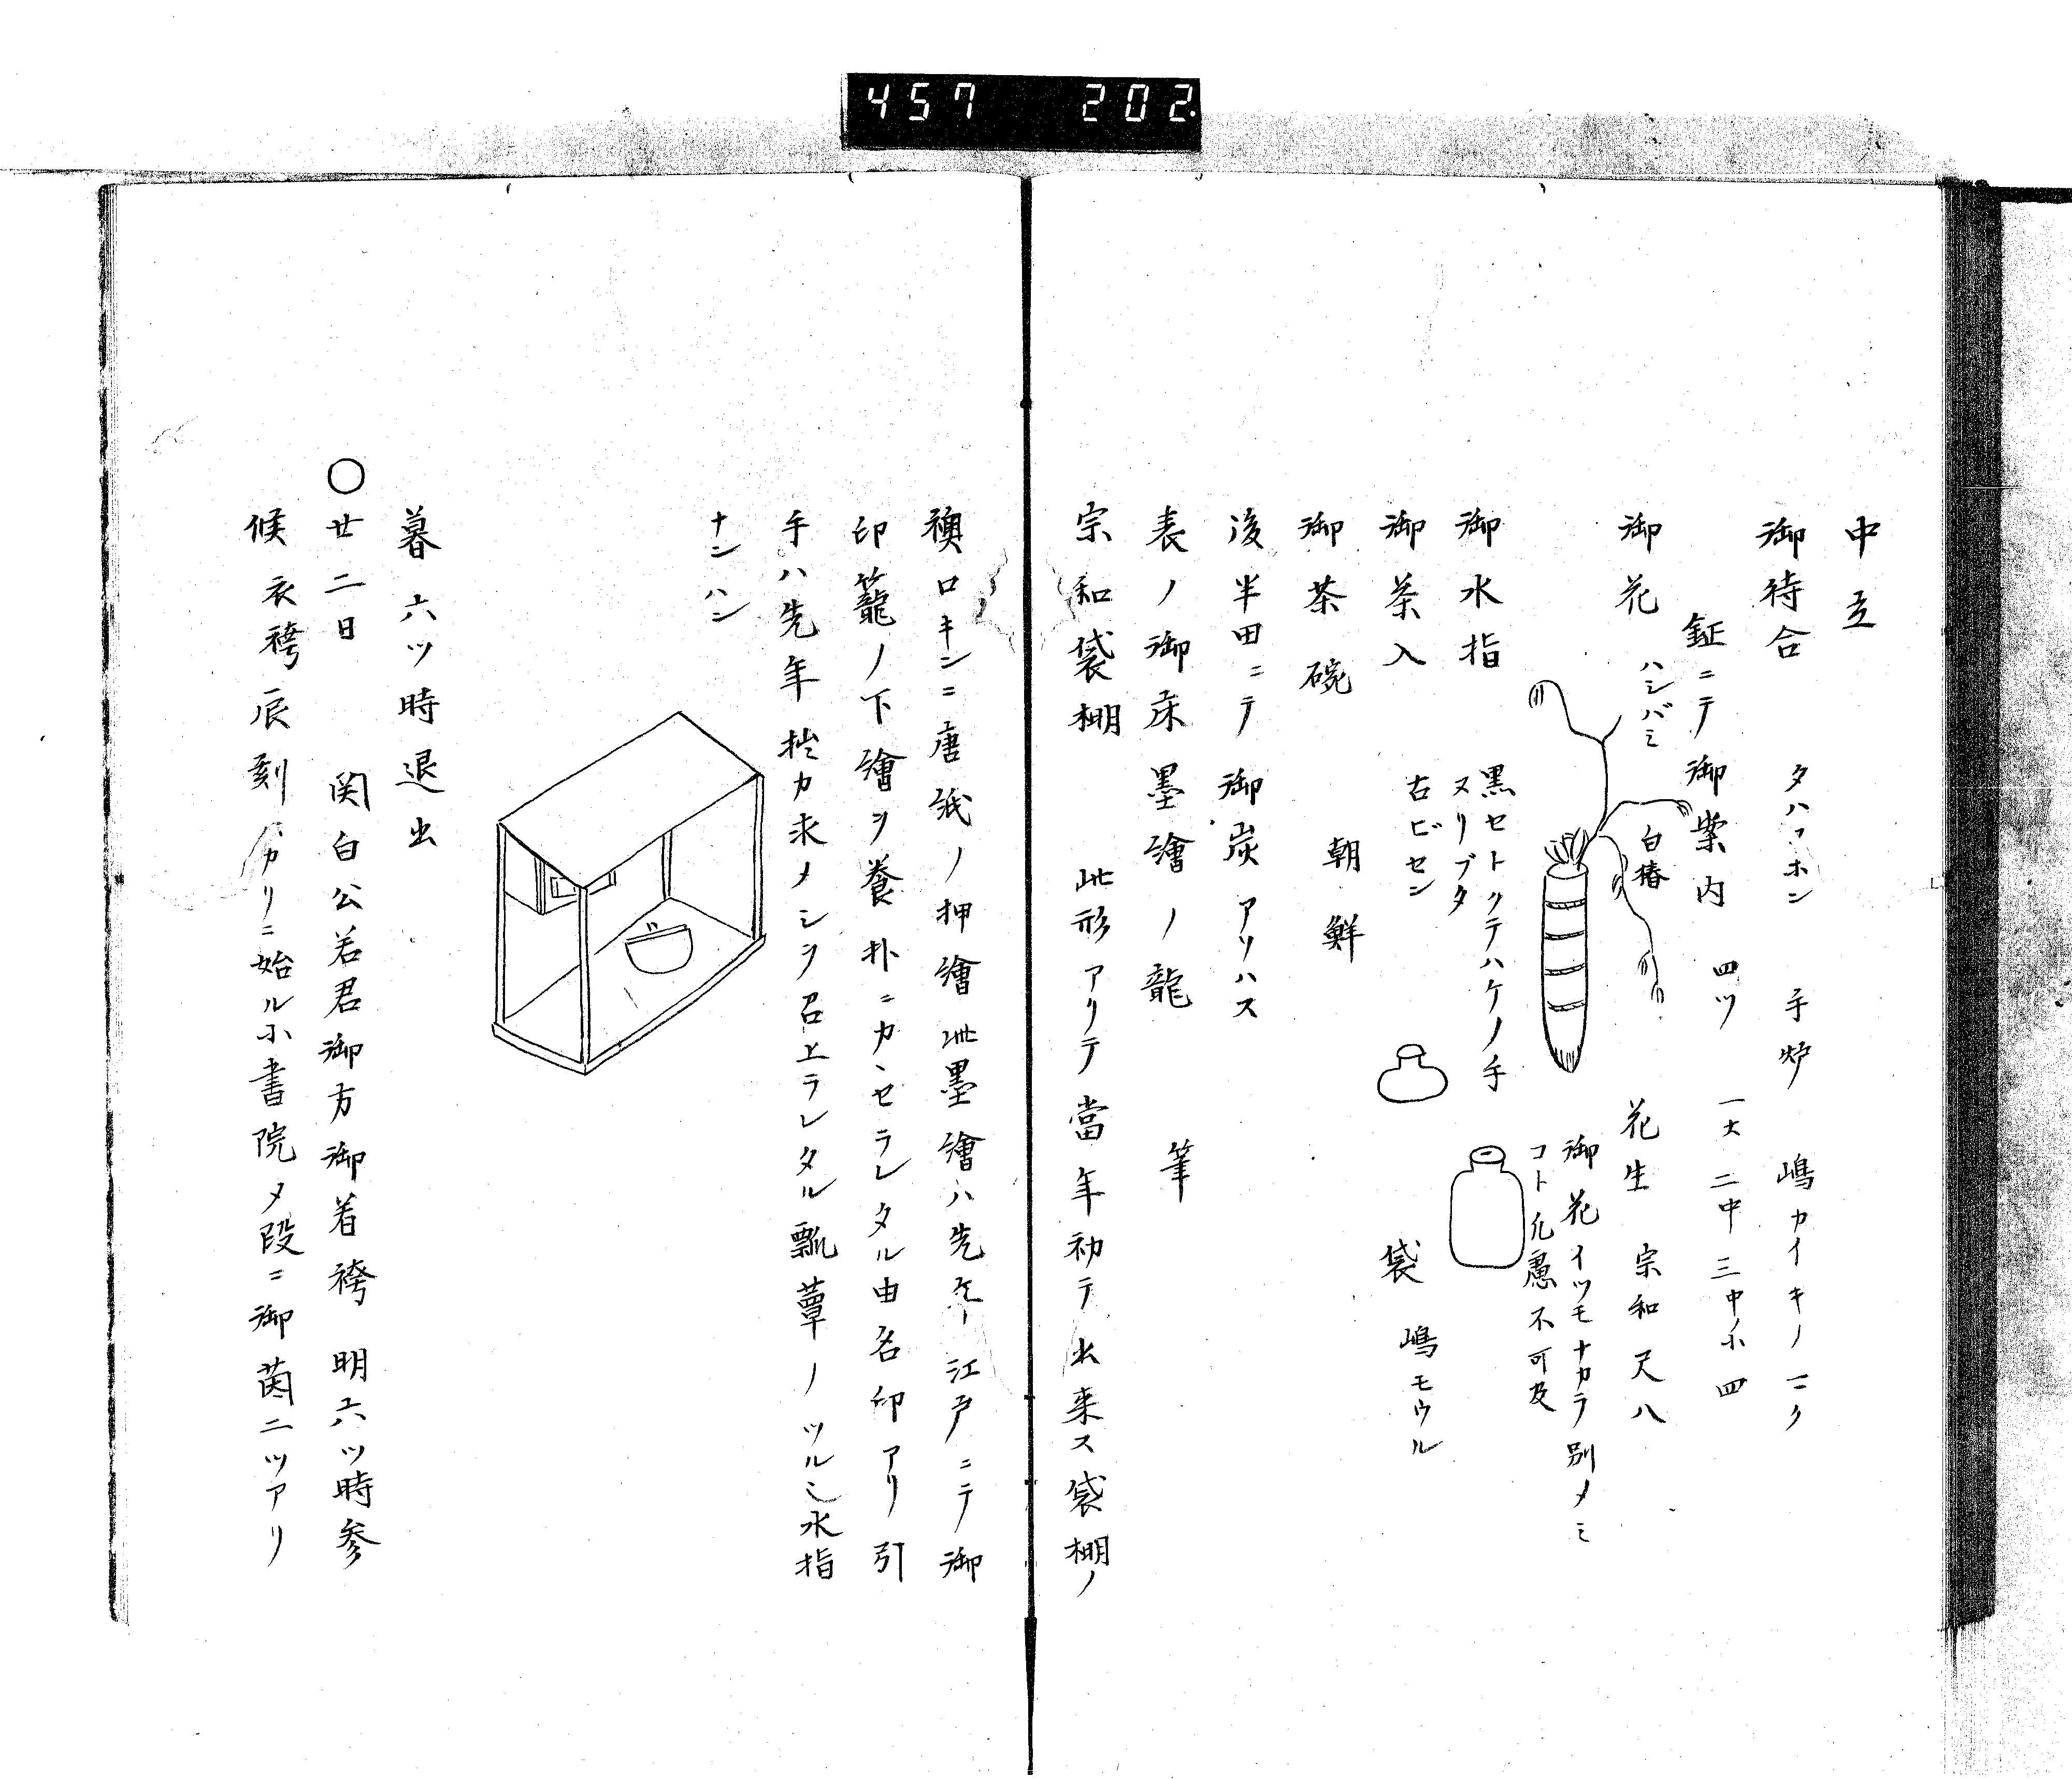 457 202.
中立
御待合 タハコホン 手炉 嶋カイキノ
鉦ニテ御案内 四ツ 一大 二中 三中小 四
御花 ハシバミ 白椿 花生 宗和尺八
御花イツモナカラ別〆ミ
コト凡慮不可及
御水指 黒セトクテハケノ手
ヌリブタ
御茶入 古ビセン 袋 嶋モウル
御茶碗 朝鮮
後半田ニテ御炭アソハス
表ノ御床墨繪ノ龍 筆
宗和袋棚 此形アリテ當年初テ出来ス袋棚ノ
襖ロキンニ唐紙ノ押繪此墨繪ハ先年江戸ニテ御
印籠ノ下繪ヲ養朴ニカヽセラレタル由名印アリ引
手ハ先年拙カ求メシヲ召上ラレタル瓢蕈ノツル也水指
ナンハン
暮六ツ時退出
〇廿二日 関白公若君御方御着袴 明六ツ時参
候 衣袴辰刻ハカリニ始ル小書院〆段ニ御茵二ツアリ